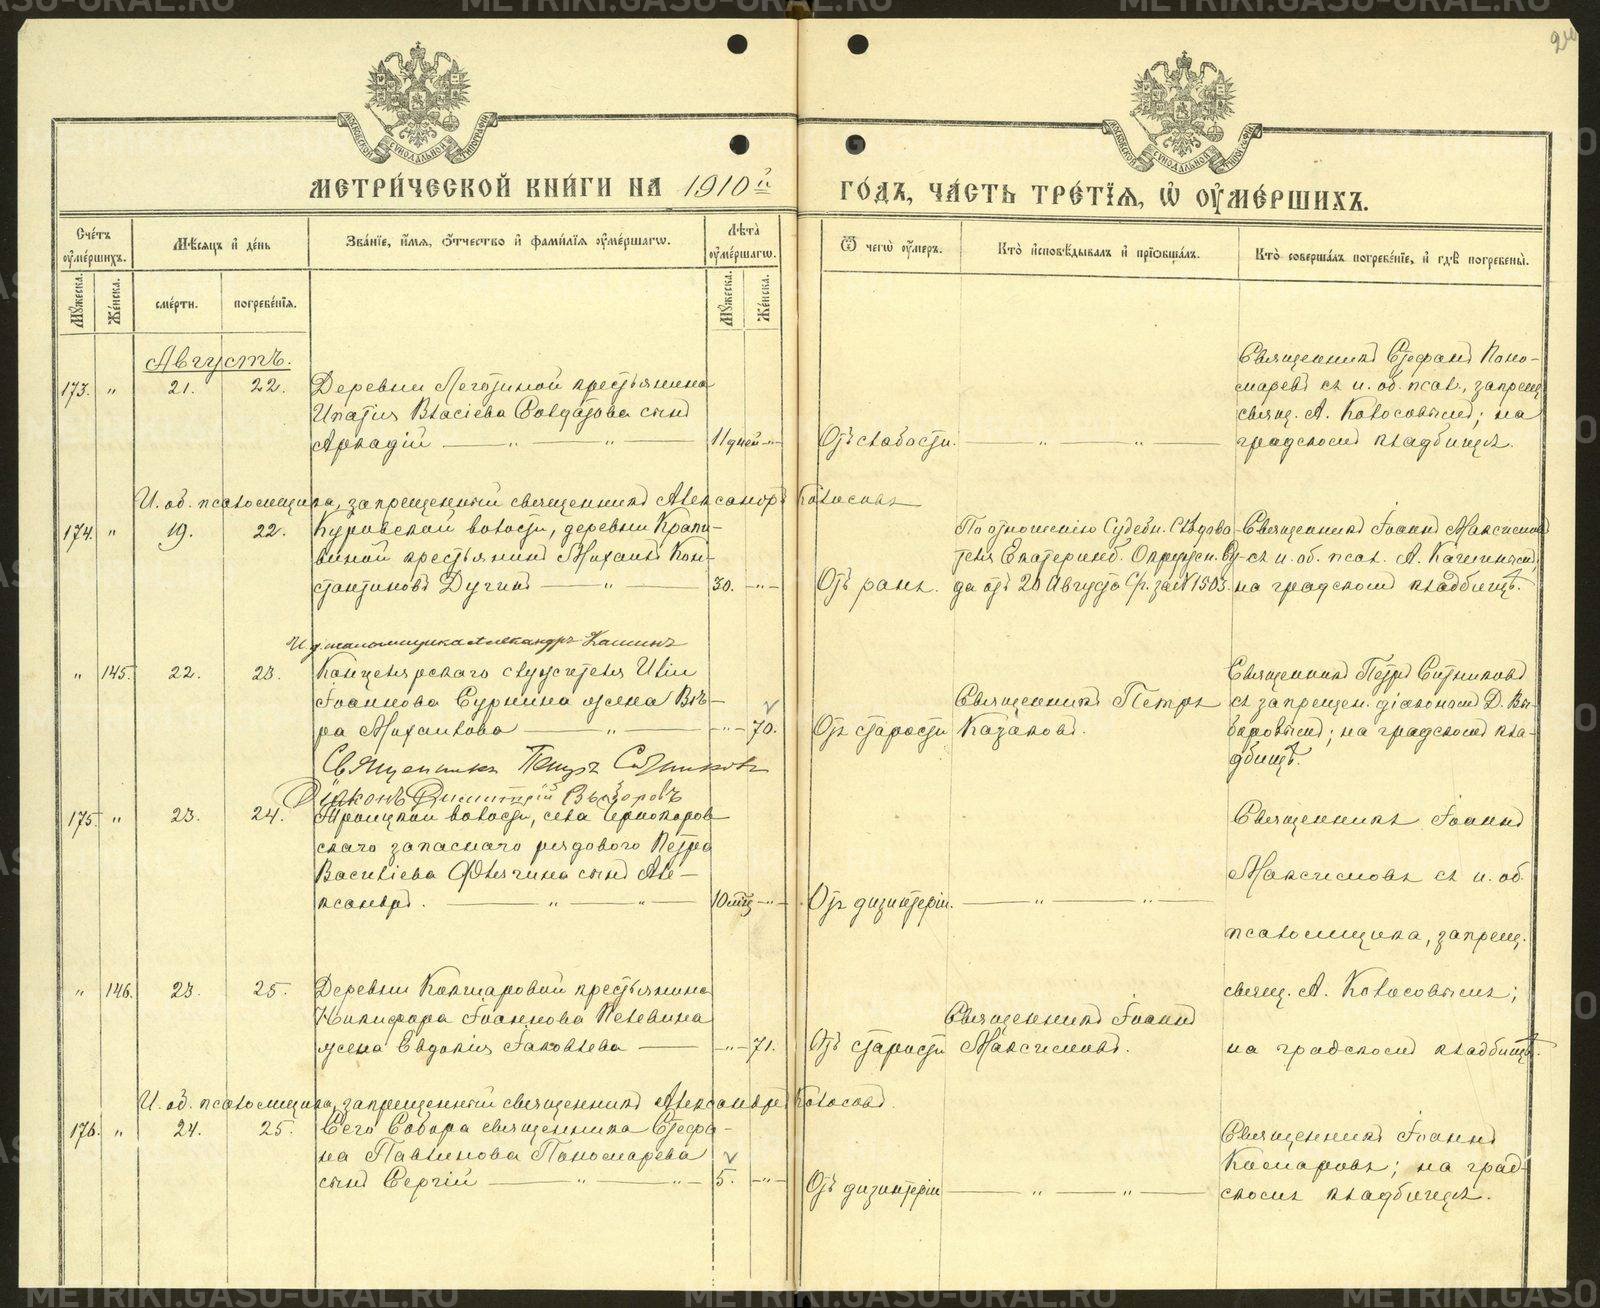 МЕТРИ́ЧЕСКОЙ КНИ́ГИ НА 1910й
ГО́ДЪ, ЧА́СТЬ ТРЕ́ТЇЯ, Ѿ ОУ҆МЕ́РШИХЪ.
Сче́тъ оу҆ме́ршихъ.
Мѣ́сяцъ и҆ де́нь
Зва́нїе, и҆́мя, ѻ҆́тчество и҆ фами́лїя оу҆ме́ршагѡ.
Лѣ́та оу҆ме́ршагѡ.
Ѿ чегѡ̀ оу҆́меръ.
Кто̀ и҆сповѣ́дывалъ и҆ прїѡбща́лъ.
Кто̀ соверша́лъ погребе́нїе, и҆ гдѣ̀ погребены̀.
Мꙋ́жеска.
Же́нска.
сме́рти.
погребе́нїя.
Мꙋ́жеска.
Же́нска.
Августъ.
173. " 21. 22. Деревни Леготиной крестьянина
Ипатія Власіева Солдатова сынъ
Аркадій — " — " — 11 дней — " —
Отъ слабости. — " — " —
Священникъ Стефанъ Поно-
маревъ съ и. об. псал., запрещ.
свящ. А. Колосовымъ; на
градскомъ кладбищѣ.
И. об. псаломщика, запрещенный священникъ Александръ Колосовъ
174. " 19. 22. Куровской волости, деревни Крапи-
виной крестьянинъ Михаилъ Кон-
стантиновъ Дугинъ — " — 30. — " —
Отъ ранъ.
По отношенію Судебн. Слѣдова-
теля Екатеринб. Окружн. Су-
да отъ 20 Августа с/г. за № 1503.
Священникъ Іоаннъ Максимовъ
съ и. об. псал. А. Кашинымъ;
на градскомъ кладбищѣ.
И д. псаломщика Александръ Кашинъ
" 145. 22. 23. Канцелярскаго служителя Иліи
Іоаннова Сурнина жена Вѣ-
ра Михаилова — " — — " — 70.
Отъ старости
Священникъ Петръ
Казаковъ.
Священникъ Петръ Ситниковъ
съ запрещен. діакономъ Д. Вы-
боровымъ; на градскомъ кла-
дбищѣ.
Священникъ Петръ Ситниковъ
Діаконъ Димитрій Выборовъ
175. " 23. 24. Троицкой волости, села
скаго запаснаго рядового Петра
Василіева сынъ Але-
ксандръ. — " — " — 10 мѣс — " —
Отъ дизинтеріи. — " — " —
Священникъ Іоаннъ
Максимовъ съ и. об.
псаломщика, запрещ.
свящ. А. Колосовымъ;
на градскомъ кладбищѣ.
" 146. 23. 25. Деревни Кокшаровой крестьянина
Никифора Іоаннова Пелевина
жена Евдокія Іаковлева — — " — 71.
Отъ старости
Священникъ Іоаннъ
Максимовъ.
И. об. псаломщика, запрещенный священникъ Александръ Колосовъ.
176. " 24. 25. Сего Собора священника Стефа-
на Павлинова Пономарева
сынъ Сергій — " — " — 5. — " —
Отъ дизинтеріи — " — " —
Священникъ Іоаннъ
Комаровъ; на град-
скомъ кладбищѣ.
METRIKI.GASU-URAL.RU